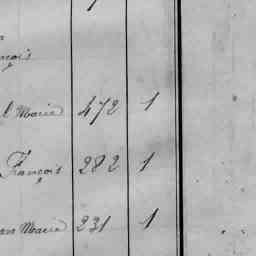 1
nçois
l Marie 472 1
François 282 1
an Marie 231 1